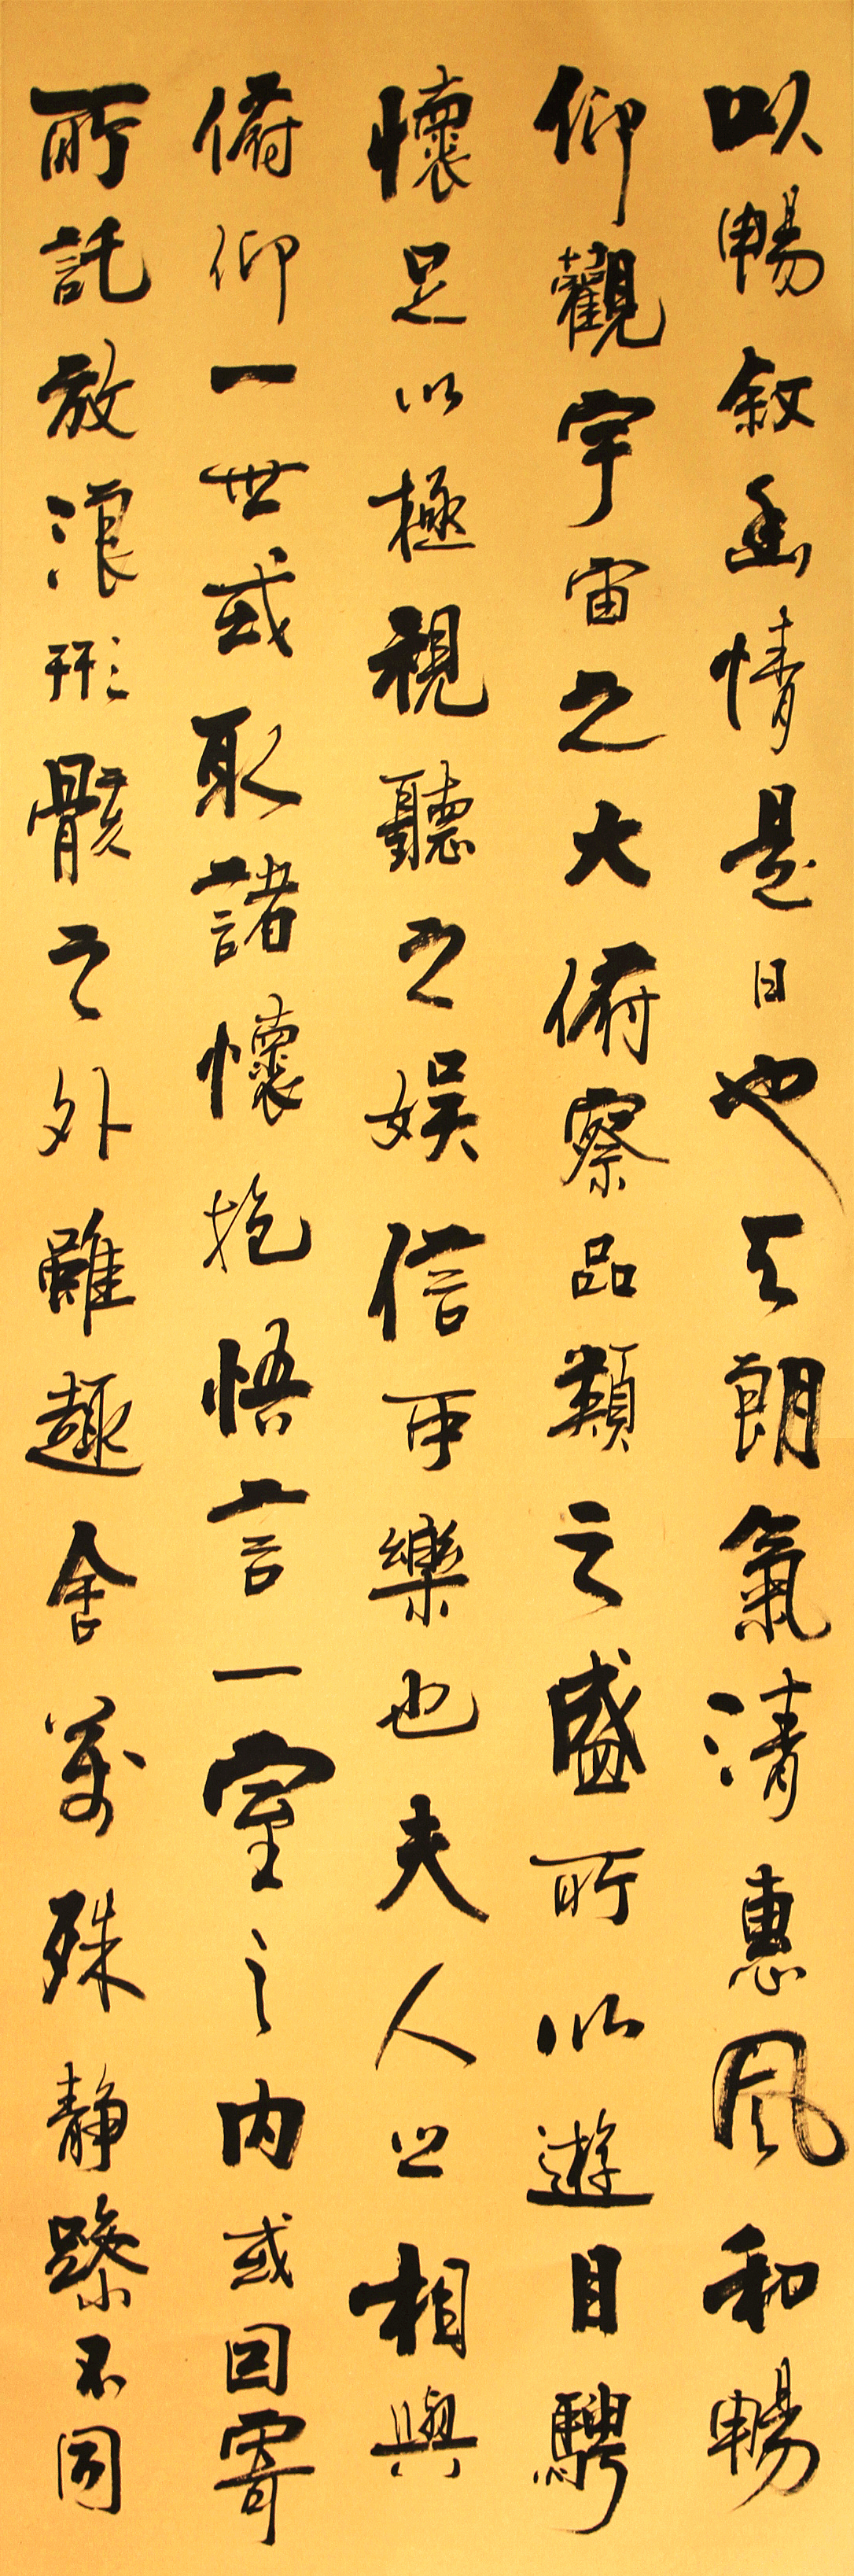 以暢敘幽情是日也天朗氣清惠風和暢
仰觀宇宙之大俯察品類之盛所以遊目騁
懷足以極視聽之娛信可樂也夫人之相與
俯仰一世或取諸懷抱悟言一室之內或因寄
所託放浪形骸之外雖趣舍萬殊靜躁不同